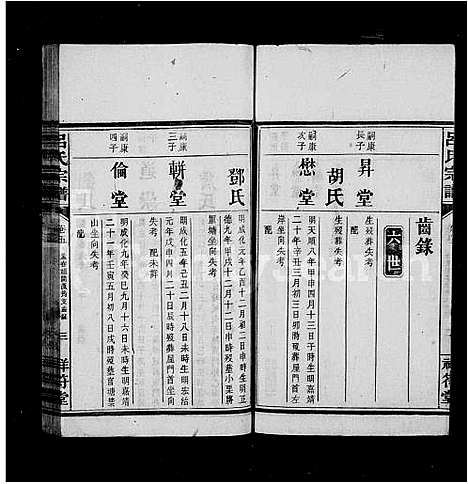 呂氏宗譜
齒錄
六世
嗣康長子
昇堂
生歿葬失考
配
胡氏
生歿葬失考
嗣康次子
懋堂
明天順八年甲申四月十三日子時生明嘉靖
二十年辛丑三月初三日卯時歿葬屋門首左
岸坐向失考
配
鄧氏
明成化元年乙酉十二月初一日寅時生明正
德九年甲戌十二月十二日申時歿葬小里將
壟塘坐向失考
嗣康三子
䡖堂
明成化五年己丑二月十八日辰時生明弘治
元年戊申四月二十日辰時歿葬屋門首坐向
失考 配未葬
嗣康四子
倫堂
明成化九年癸巳九月十六日未時生明嘉靖
二十一年壬寅五月初八日戌時歿葬
山坐向失考
配
呂氏宗譜
卷五
祥符堂